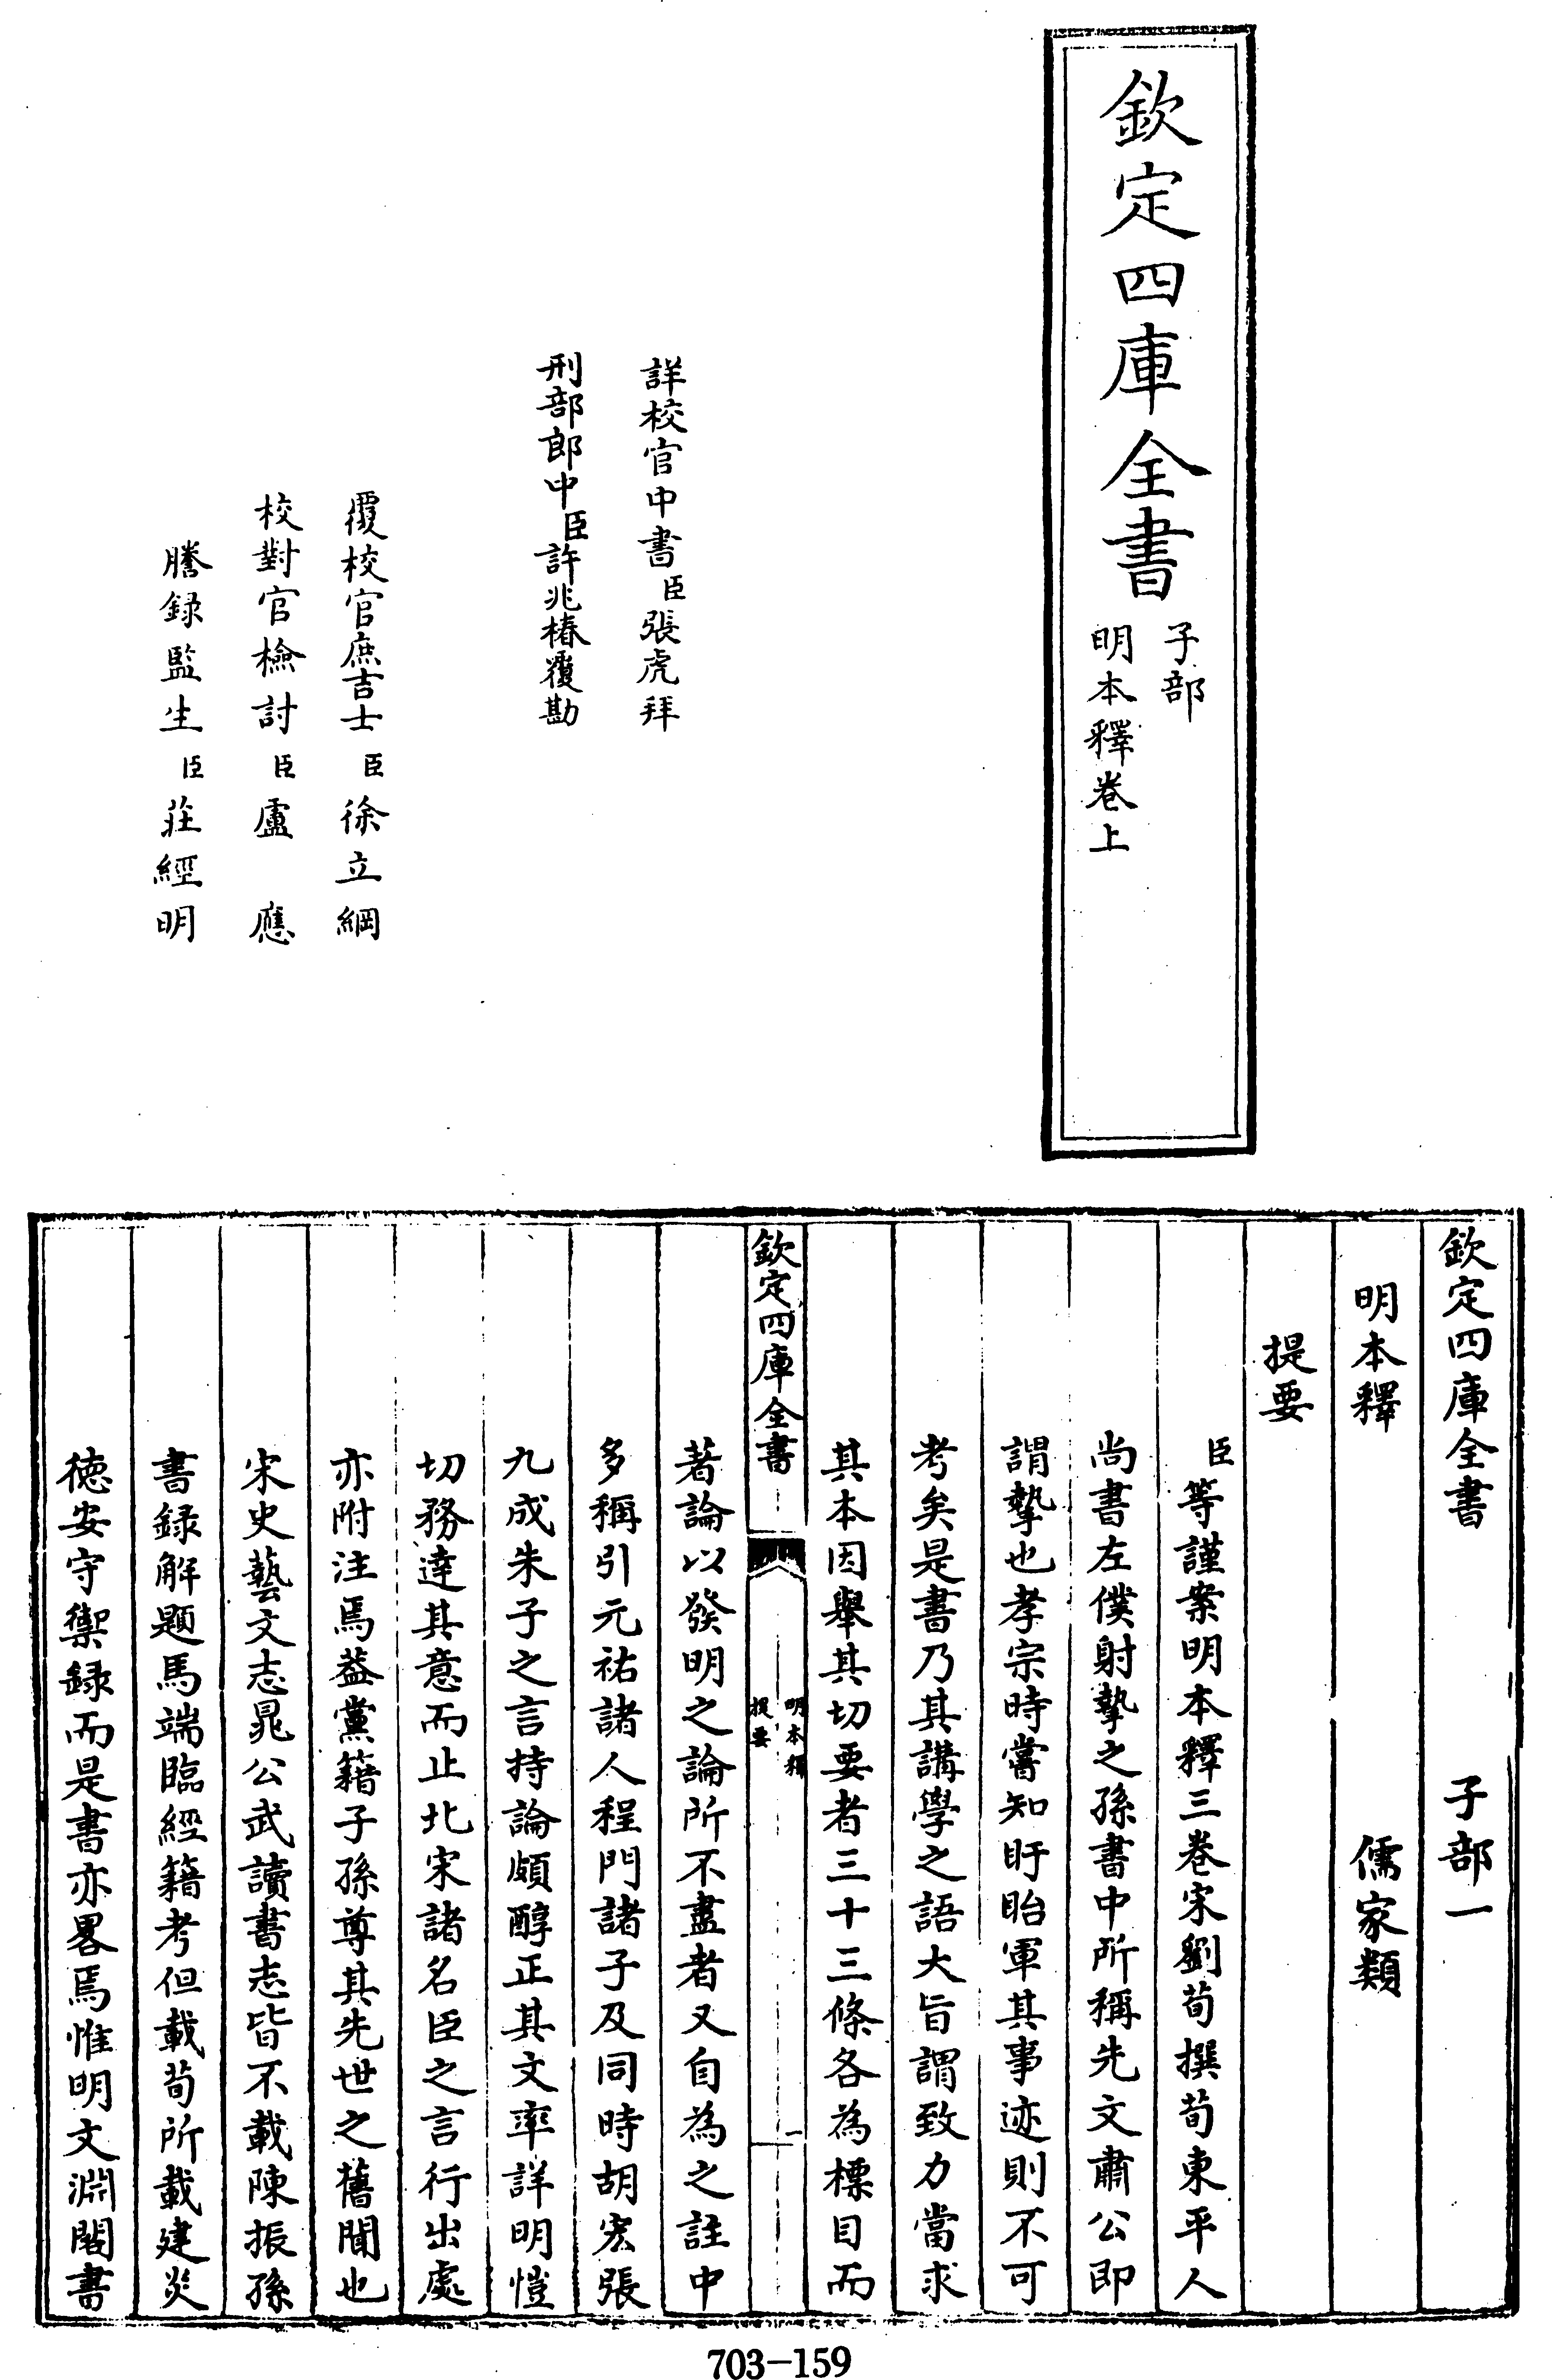 欽定四庫全書
子部
明本釋卷上
詳校官中書臣張虎拜
刑部郎中臣許兆椿覆勘
覆校官庶吉士臣徐立綱
校對官檢討臣盧應
謄錄監生臣莊經明
欽定四庫全書 子部一
明本釋 儒家類
提要
臣等謹案明本釋三卷宋劉荀撰荀東平人
尚書左僕射摯之孫書中所稱先文肅公即
謂摯也孝宗時嘗知盱眙軍其事迹則不可
考矣是書乃其講學之語大旨謂致力當求
其本因舉其切要者三十三條各為標目而
欽定四庫全書
明本釋
提要
一
著論以發明之論所不盡者又自為之註中
多稱引元祐諸人程門諸子及同時胡宏張
九成朱子之言持論頗醇正其文率詳明愷
切務達其意而止北宋諸名臣之言行出處
亦附注焉葢黨籍子孫尊其先世之舊聞也
宋史藝文志晁公武讀書志皆不載陳振孫
書錄解題馬端臨經籍考但載荀所載建炎
德安守禦錄而是書亦畧焉惟明文淵閣書
703-159